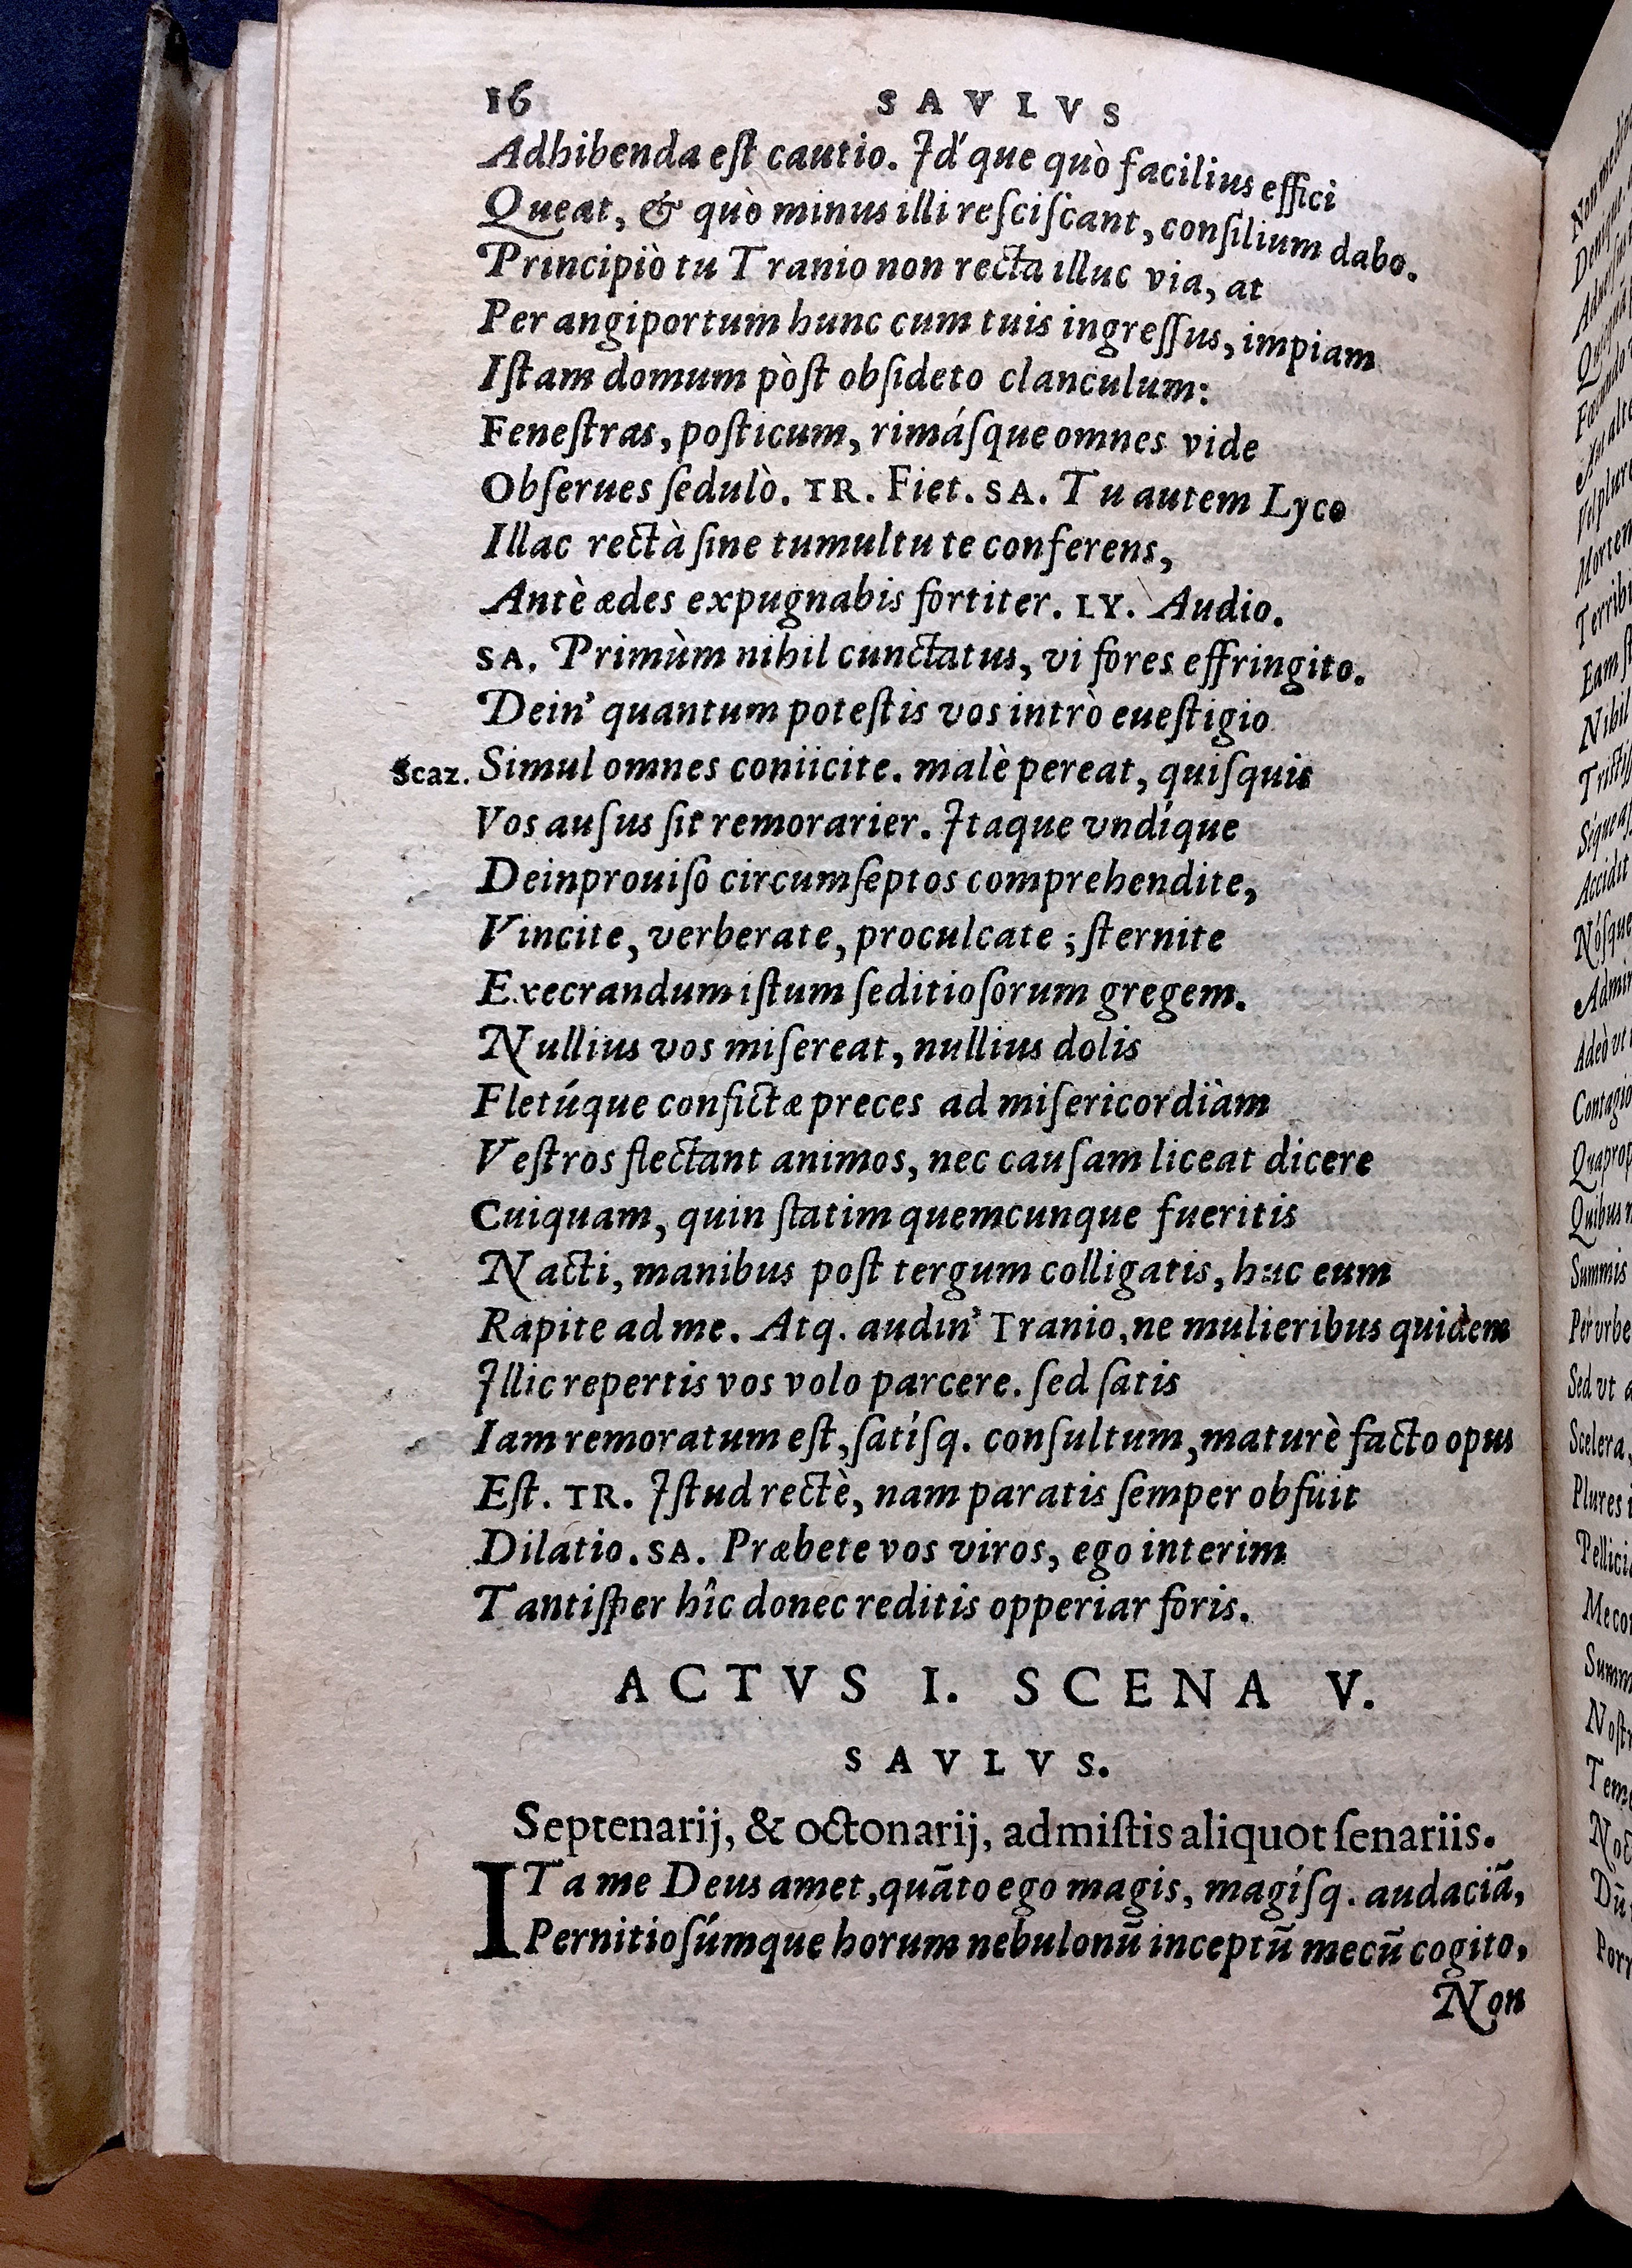 16 SAVLVS
Adhibenda eſt cautio. Id'que quò facilius effici
Queat, & quò minus illi reſciſcant, conſilium dabo.
Principiò tu Tranio non recta illuc via, at
Per angiportum hunc cum tuis ingreſſus, impiam
Iſtam domum pòſt obſideto clanculum:
Feneſtras, poſticum, rimáſque omnes vide
Obſerues ſedulò. TR. Fiet. SA. Tu autem Lyco
Illac rectà ſine tumultu te conferens,
Antè ædes expugnabis fortiter. LY. Audio.
SA. Primùm nihil cunctatus, vi fores effringito.
Dein' quantum poteſtis vos intrò eueſtigio
Scaz. Simul omnes coniicite. malè pereat, quiſquis
Vos auſus ſit remorarier. Itaque vndíque
Deinprouiſo circumſeptos comprehendite,
Vincite, verberate, proculcate; ſternite
Execrandum iſtum ſeditioſorum gregem.
Nullius vos miſereat, nullius dolis
Fletúque confictæ preces ad miſericordiam
Veſtros flectant animos, nec cauſam liceat dicere
Cuiquam, quin ſtatim quemcunque fueritis
Nacti, manibus poſt tergum colligatis, huc eum
Rapite ad me. Atq. audin' Tranio, ne mulieribus quidem
Illic repertis vos volo parcere. ſed ſatis
Iam remoratum eſt, ſatíſq. conſultum, maturè facto opus
Eſt. TR. Iſtud rectè, nam paratis ſemper obfuit
Dilatio. SA. Præbete vos viros, ego interim
Tantiſper hîc donec reditis opperiar foris.
ACTVS I. SCENA V.
SAVLVS.
Septenarij, & octonarij, admiſtis aliquot ſenariis.
ITa me Deus amet, quāto ego magis, magíſq. audaciā,
Pernitioſúmque horum nebulonū inceptū mecū cogito,
Non